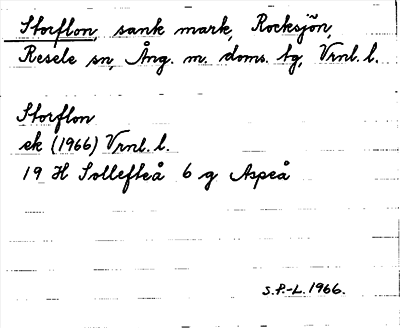 Storflon, sank mark, Rocksjön,
Resele sn, Ång. m. doms. tg, Vrnl. l.
Storflon
ek (1966) Vrnl. l.
19 H Sollefteå 6 g Aspeå
S.P.-L. 1966.